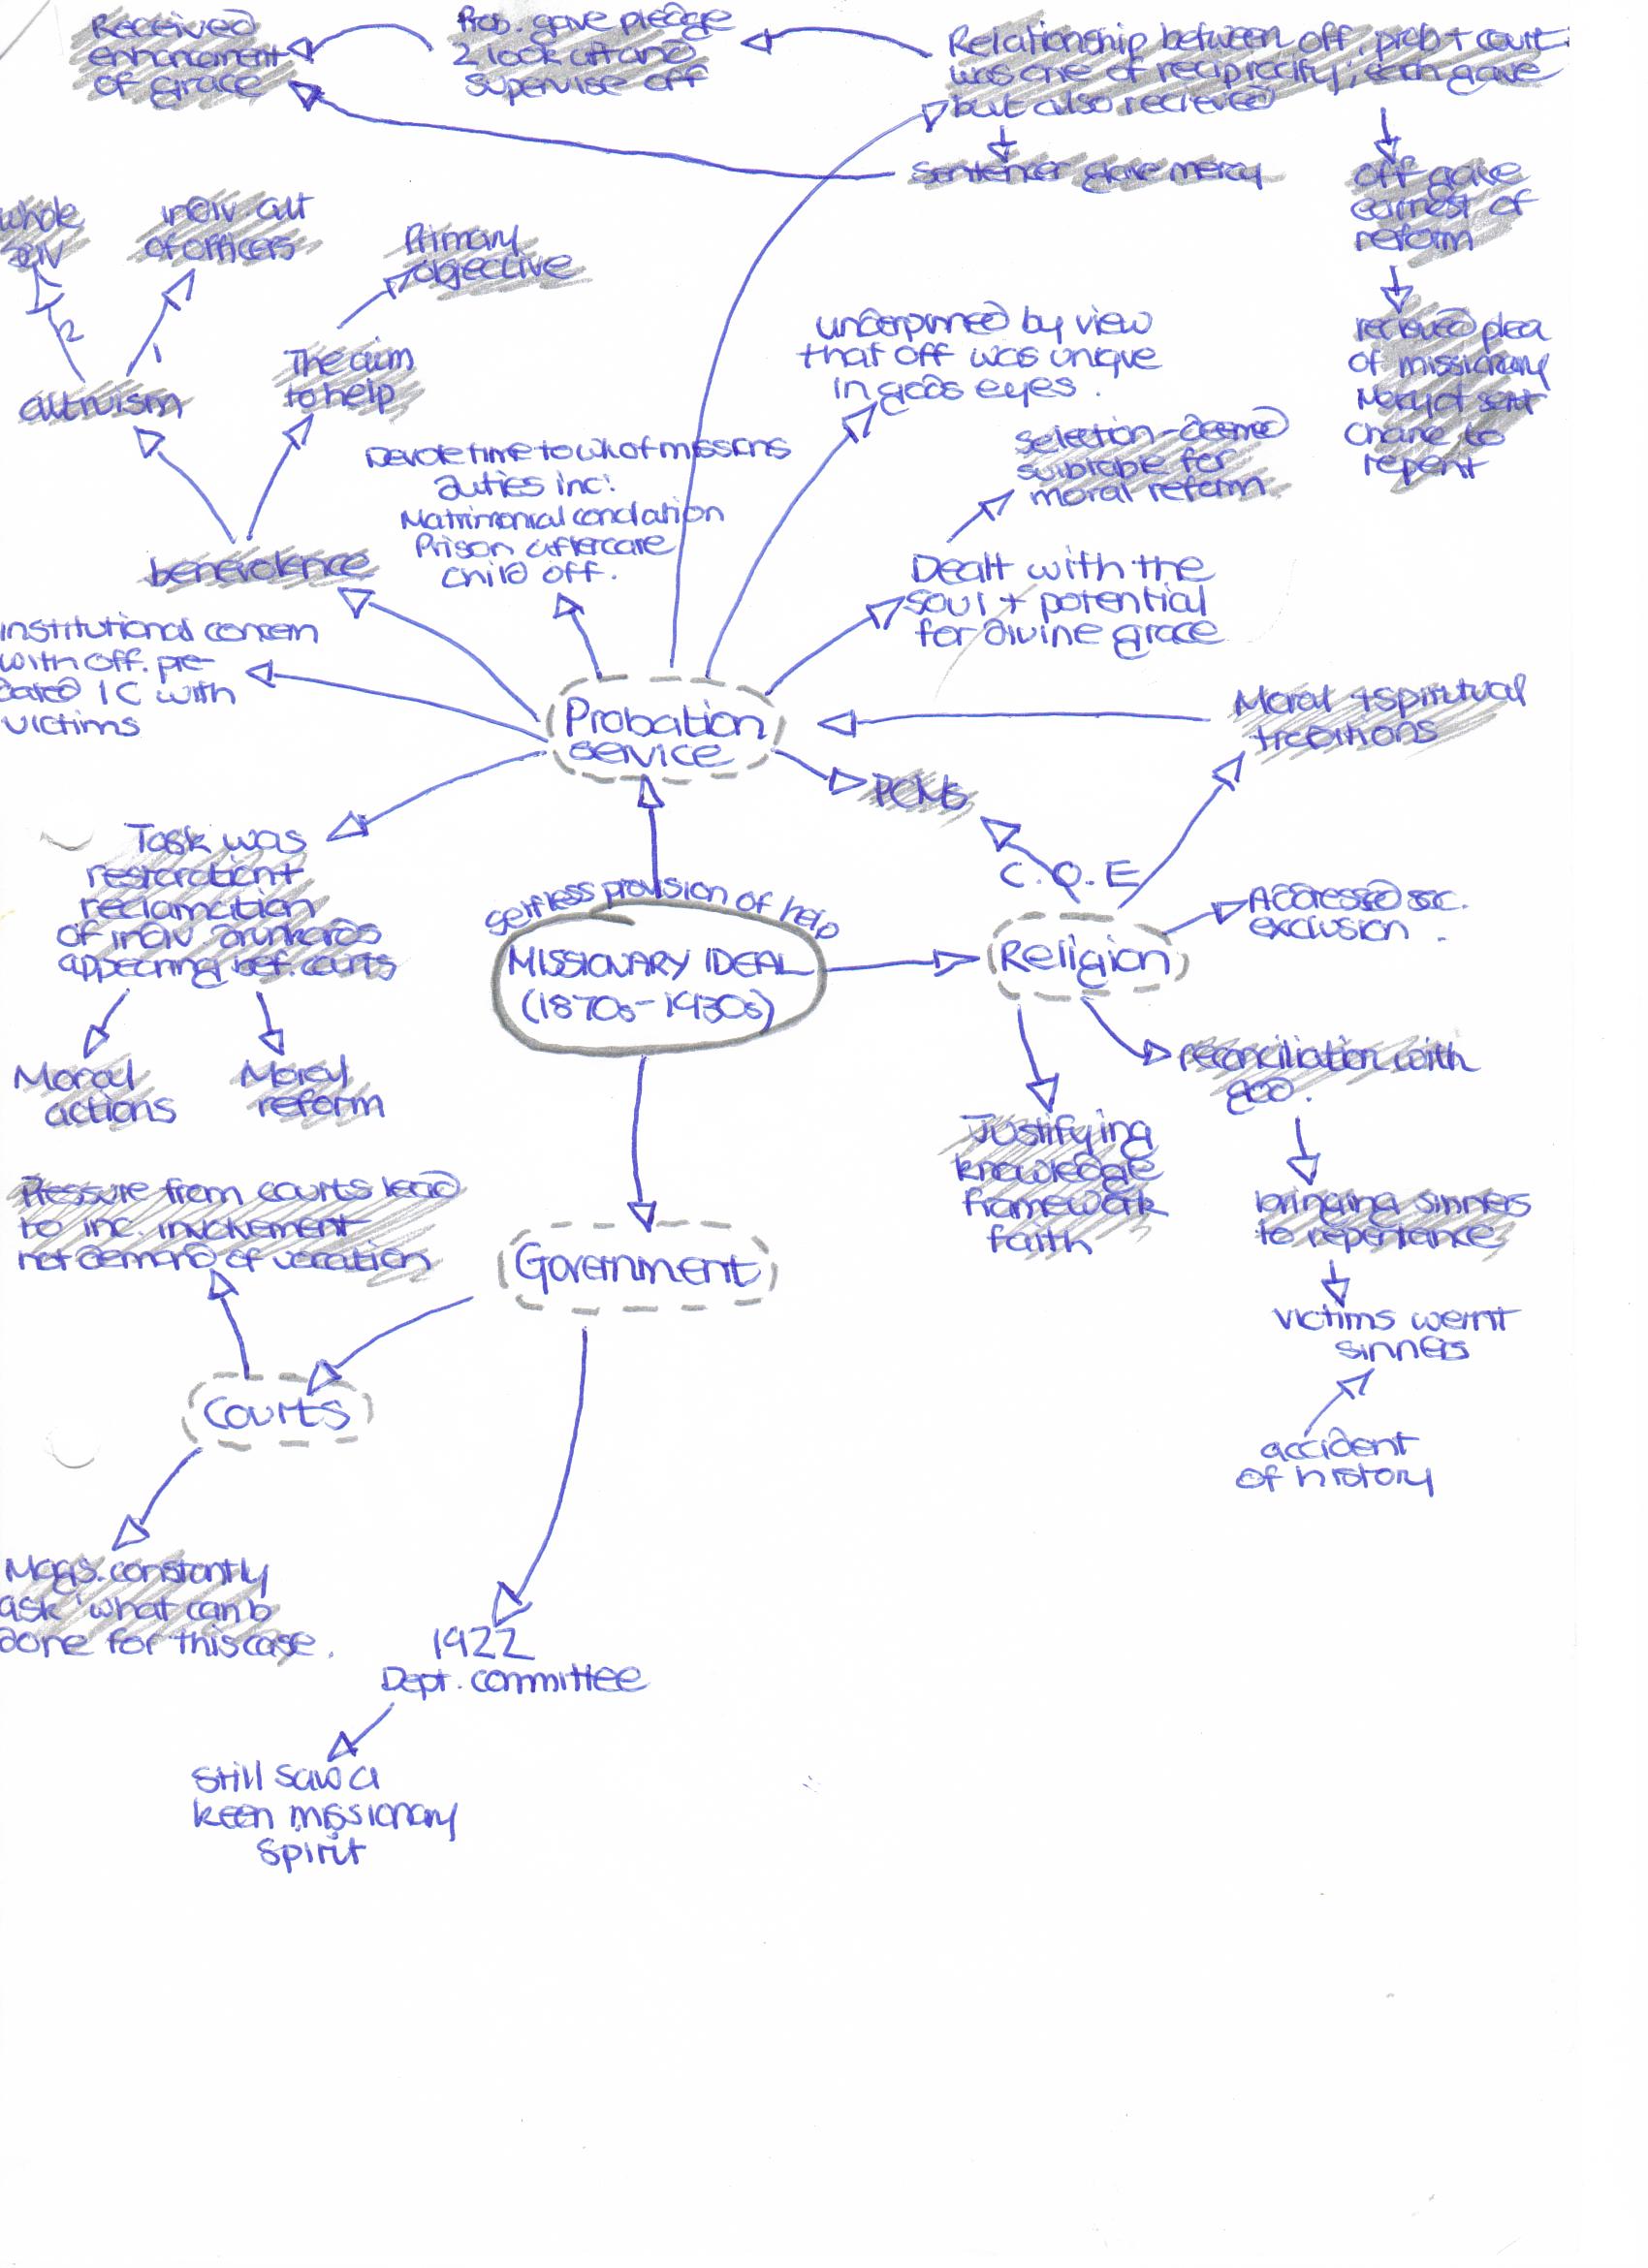 Received
enhancement
of grace
Prob. gave pledge
2 look aft and
supervise off
Relationship between off, prob + court
was one of reciprocity; each gave
but also recieved
sentencer gave mercy
off gave
earnest of
reform
recieved plea
of missionary
Mercy of sent
chance to
repent
whole
indiv. alt
of officers
Primary
objective
2
1
altruism
The aim
to help
underpinned by view
that off was unique
in gods eyes.
Devote time to wk of missions
duties inc:
Matrimonial concilation
Prison aftercare
child off.
selection - deemed
suitable for
moral reform.
benevolence
Dealt with the
soul + potential
for divine grace
institutional concern
with off. pre-
dated IC with
victims
Probation
service
Moral + spiritual
traditions
PCMS
Task was
restoration +
reclamation
of indiv. drunkards
appearing bef. courts
C.O.E
Addressed soc.
exclusion.
selfless provision of help
MISSIONARY IDEAL
(1870s-1930s)
Religion
Moral
actions
Moral
reform
reconciliation with
god.
Justifying
knowledge
framework
faith
bringing sinners
to repentance
Pressure from courts lead
to inc. involvement
not demand of vocation
Government
victims wernt
sinners
accident
of history
Courts
Mags. constantly
ask 'what can b
done for this case.
1922
Dept. committee
still saw a
keen missionary
spirit